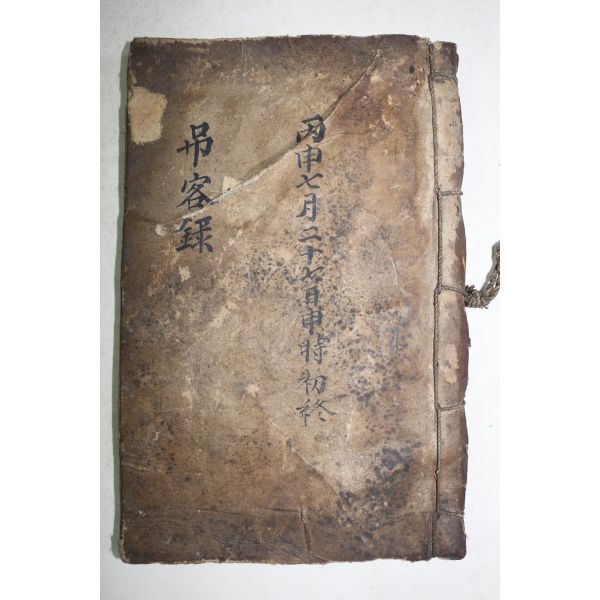 丙申七月二十七日申時初終
吊客録